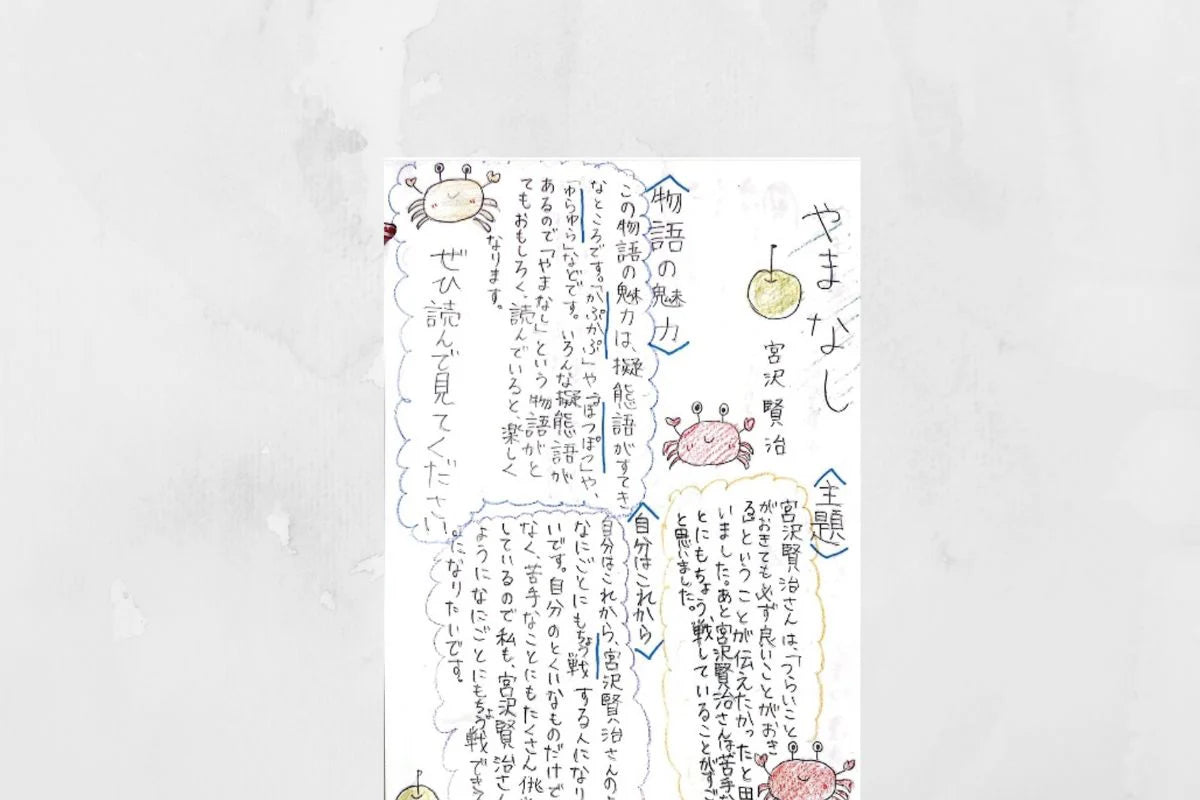 やまなし
宮沢賢治
〈主題〉
宮沢賢治さんは、「つらいこと
がおきても必ず良いことがおき
る」ということが伝えたかったと
いました。あと宮沢賢治さんは苦手な
とにもちょう戦していることがすご
と思いました。
〈物語の魅力〉
この物語の魅力は、擬態語がすてき
なところです。「かぷかぷ」や「ぽつぽつ」や、
「ゆらゆら」などです。いろんな擬態語が
あるので「やまなし」という物語がと
てもおもしろく、読んでいると、楽しく
なります。
ぜひ読んで見てください。
〈自分はこれから〉
自分はこれから、宮沢賢治さんの
なにごとにもちょう戦する人になり
いです。自分のとくいなものだけで
なく、苦手なことにもたくさん
しているので私も、宮沢賢治さん
ようになにごとにもちょう戦できる
になりたいです。